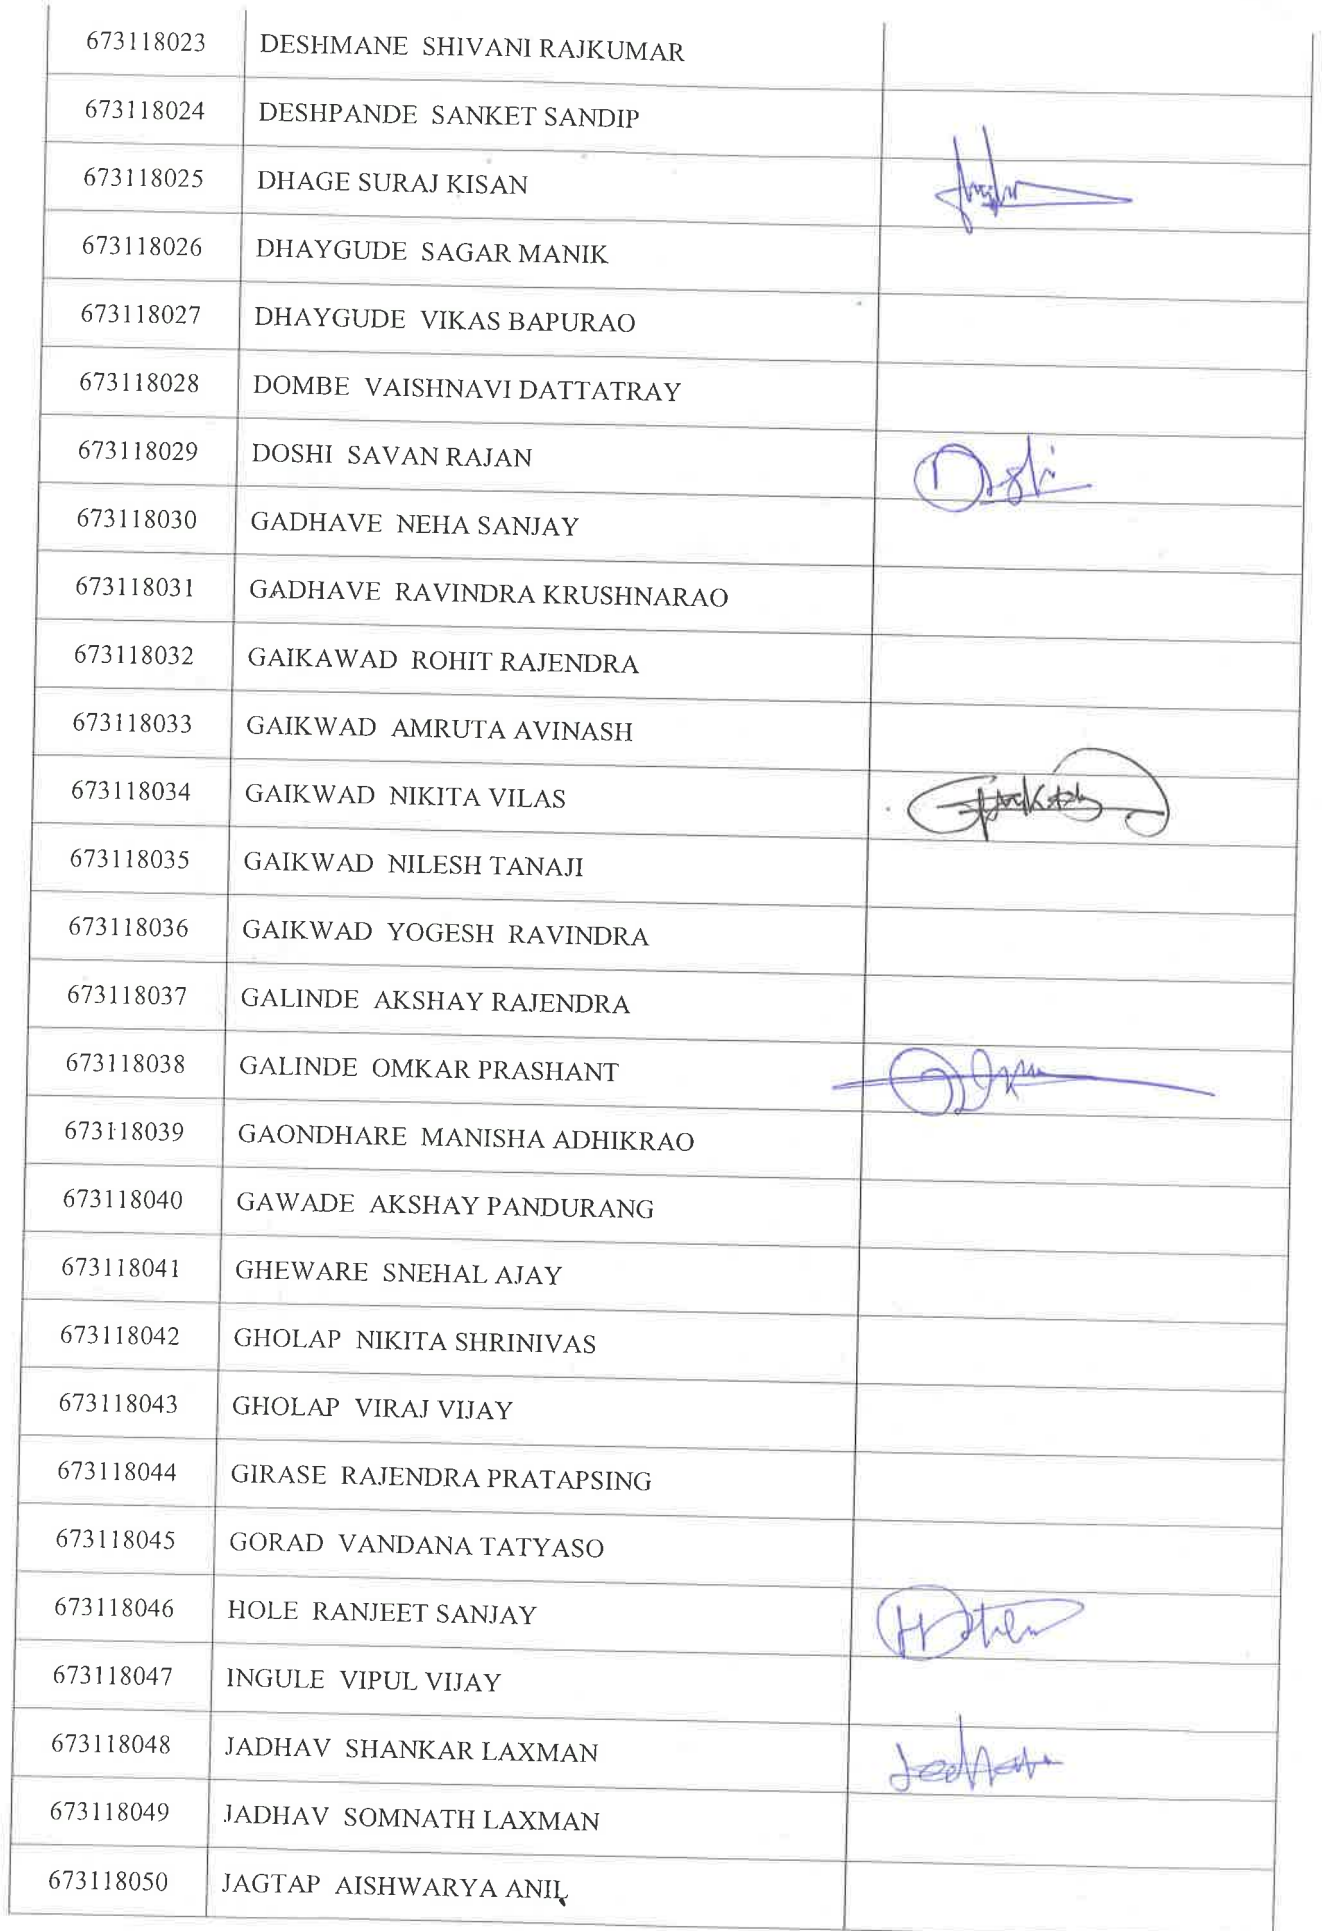 673118023 DESHMANE SHIVANI RAJKUMAR
673118024 DESHPANDE SANKET SANDIP
673118025 DHAGE SURAJ KISAN
673118026 DHAYGUDE SAGAR MANIK
673118027 DHAYGUDE VIKAS BAPURAO
673118028 DOMBE VAISHNAVI DATTATRAY
673118029 DOSHI SAVAN RAJAN
673118030 GADHAVE NEHA SANJAY
673118031 GADHAVE RAVINDRA KRUSHNARAO
673118032 GAIKAWAD ROHIT RAJENDRA
673118033 GAIKWAD AMRUTA AVINASH
673118034 GAIKWAD NIKITA VILAS
673118035 GAIKWAD NILESH TANAJI
673118036 GAIKWAD YOGESH RAVINDRA
673118037 GALINDE AKSHAY RAJENDRA
673118038 GALINDE OMKAR PRASHANT
673118039 GAONDHARE MANISHA ADHIKRAO
673118040 GAWADE AKSHAY PANDURANG
673118041 GHEWARE SNEHAL AJAY
673118042 GHOLAP NIKITA SHRINIVAS
673118043 GHOLAP VIRAJ VIJAY
673118044 GIRASE RAJENDRA PRATAPSING
673118045 GORAD VANDANA TATYASO
673118046 HOLE RANJEET SANJAY
673118047 INGULE VIPUL VIJAY
673118048 JADHAV SHANKAR LAXMAN
673118049 JADHAV SOMNATH LAXMAN
673118050 JAGTAP AISHWARYA ANIL